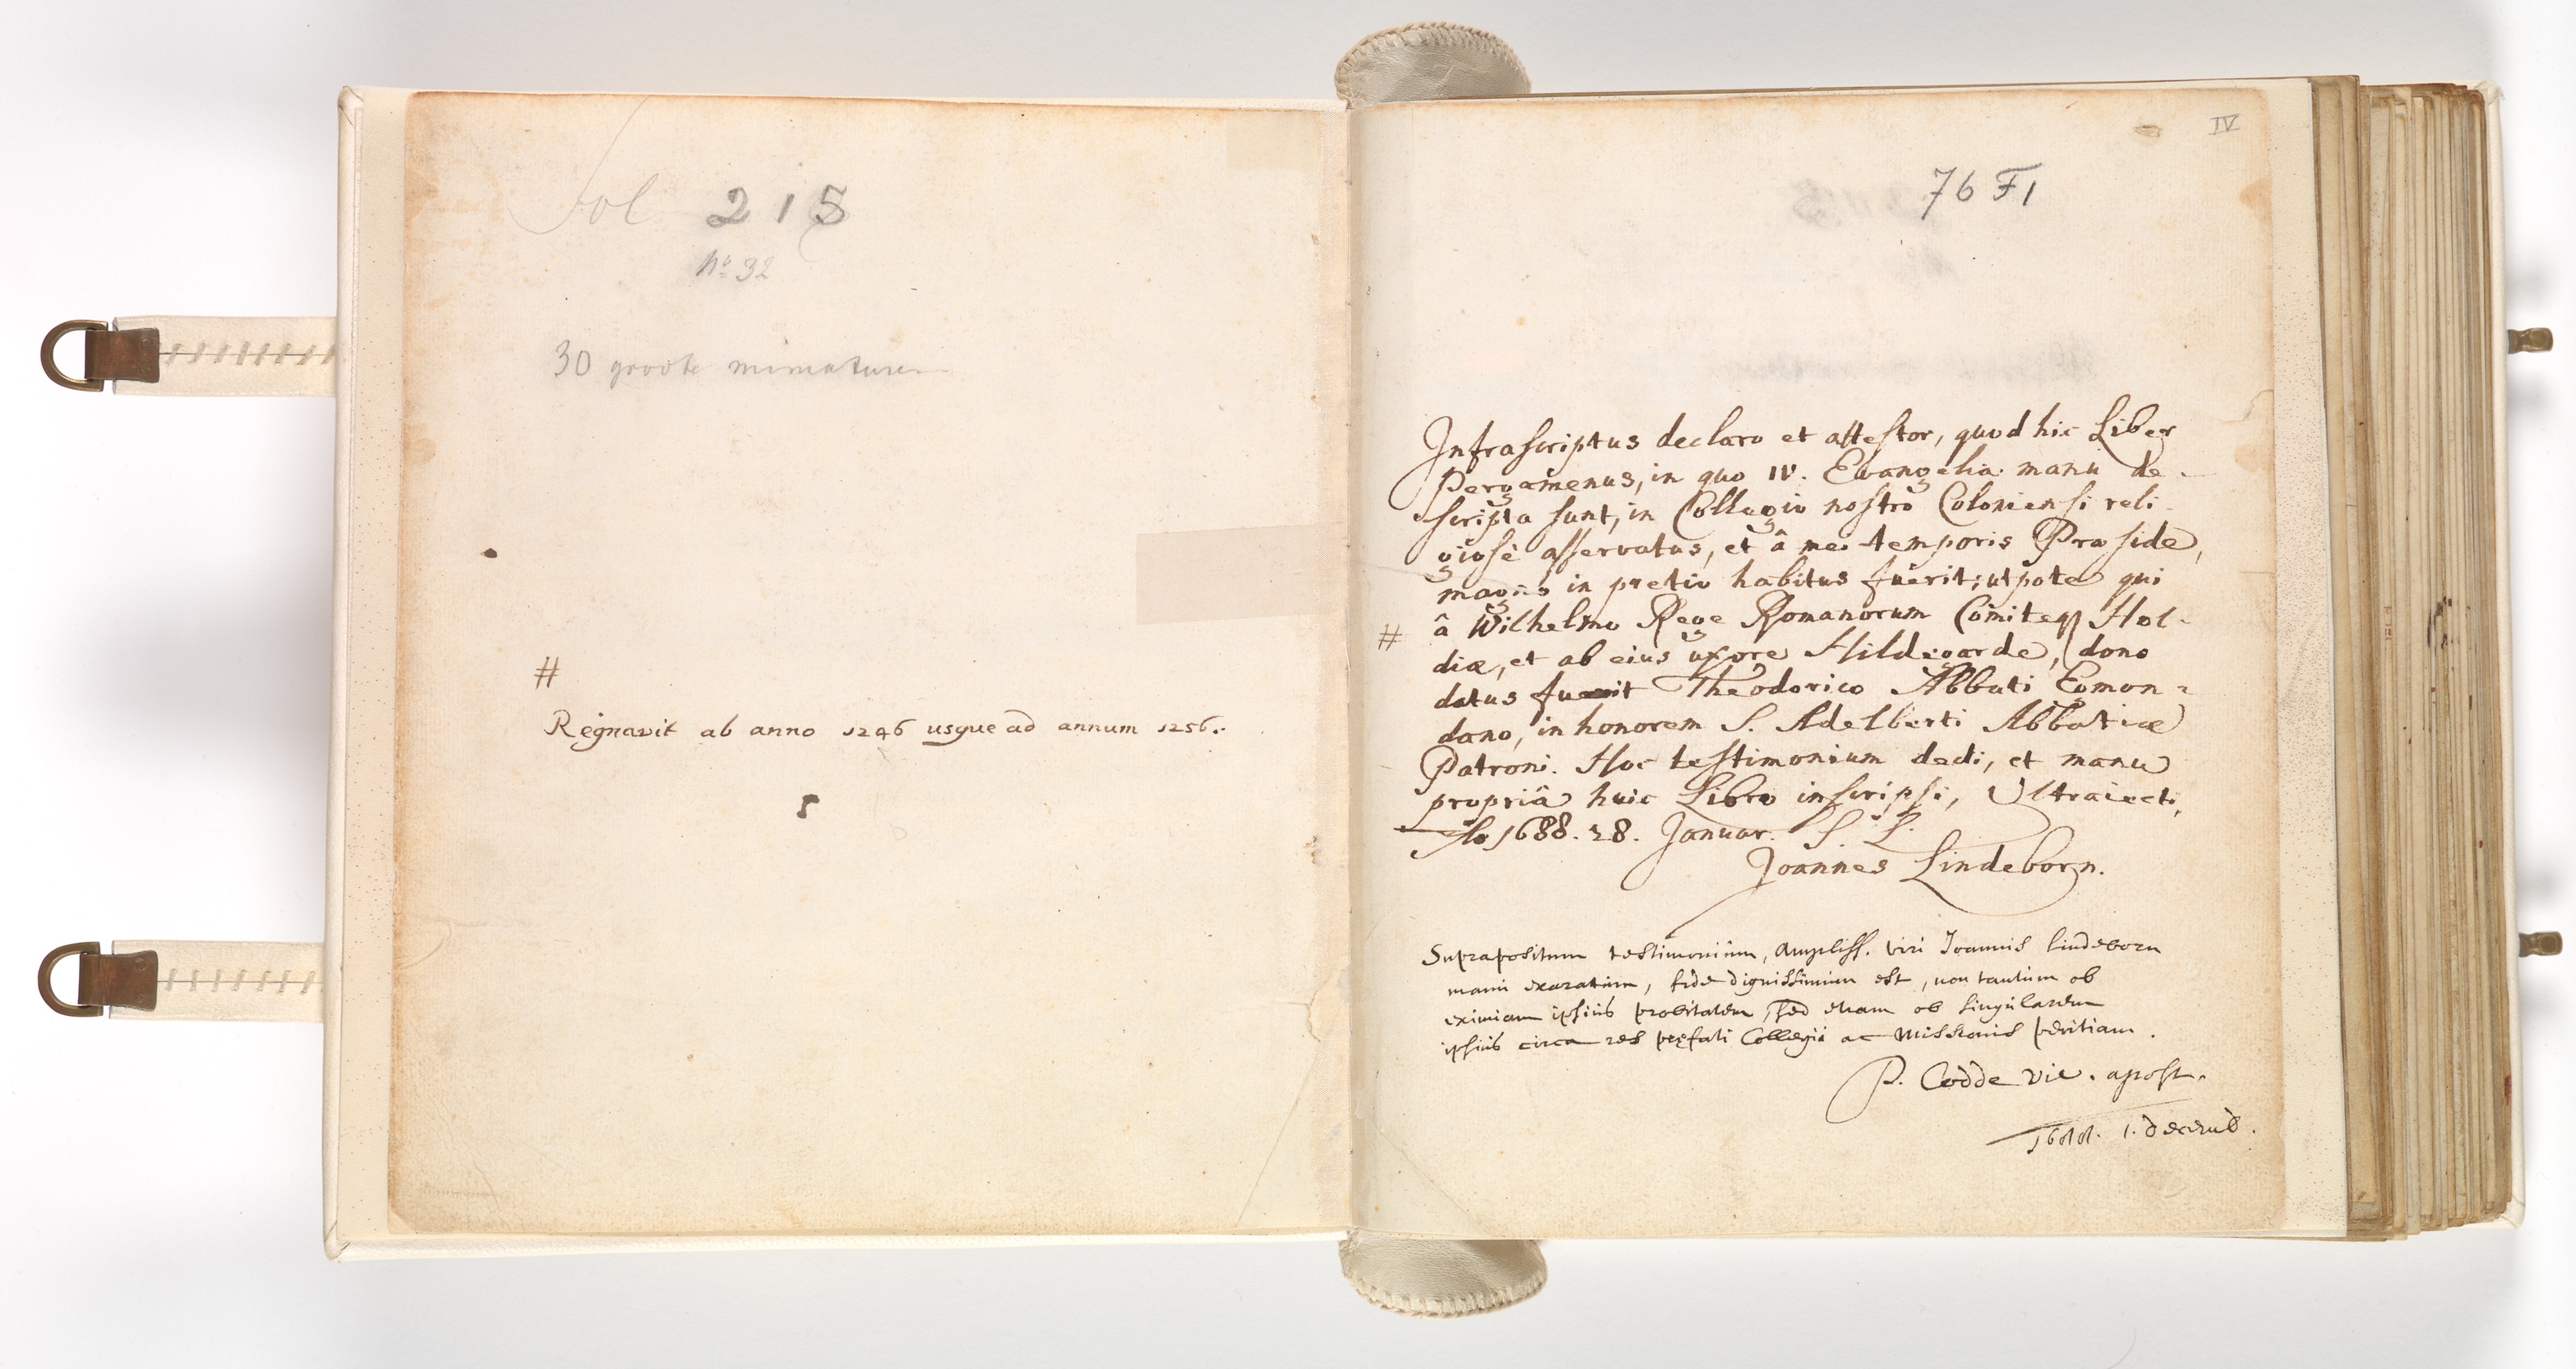 Fol 215
No 32
30 groote miniaturen
#
Regnavit ab anno 1246 usque ad annum 1256.
IV
76 F 1
Infrascriptus declaro et attestor, quod hic Liber
Pergamenus, in quo IV. Evangelia manu de-
scripta sunt, in Collegio nostro Coloniensi reli-
giosè asservatus, et â mei temporis Præside,
magni in pretio habitus fuerit; utpote qui
# â Wilhelmo Rege Romanorum Comiteq Hol-
diæ, et ab eius uxore Hildegarde, dono
datus fuerit Theodorico Abbati Egmon-
dano, in honorem S. Adelberti Abbatiæ
Patroni. Hoc testimonium dedi, et manu
propriâ huic Libro inscripsi, Ultraiecti,
Ao 1688. 28. Januar. S. L.
Joannes Lindeborn.
Suprapositum testimonium, Ampliss. viri Joannis Lindeborn
manu exaratum, fide dignissimum est, non tantum ob
eximiam ipsius probitatem, sed etiam ob singularem
ipsius circa res præfati Collegii ac Missionis peritiam.
P. Codde vic. apost.
1688. 1. decemb.